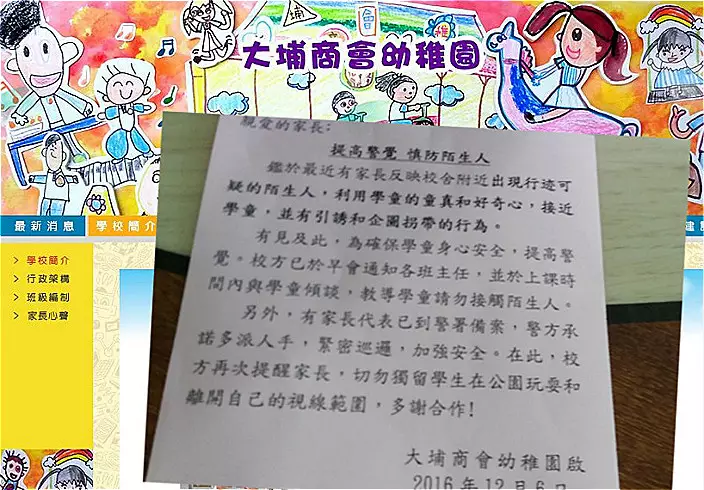 大埔商會幼稚園
最新消息
學校簡介
> 學校簡介
> 行政架構
> 班級編制
> 家長心聲
親愛的家長：
提高警覺 慎防陌生人
鑑於最近有家長反映校舍附近出現行迹可
疑的陌生人，利用學童的童真和好奇心，接近
學童，並有引誘和企圖拐帶的行為。
有見及此，為確保學童身心安全，提高警
覺。校方已於早會通知各班主任，並於上課時
間內與學童傾談，教導學童請勿接觸陌生人。
另外，有家長代表已到警署備案，警方承
諾多派人手，緊密巡邏，加強安全。在此，校
方再次提醒家長，切勿獨留學生在公園玩耍和
離開自己的視線範圍，多謝合作!
大埔商會幼稚園啟
2016年12月6日